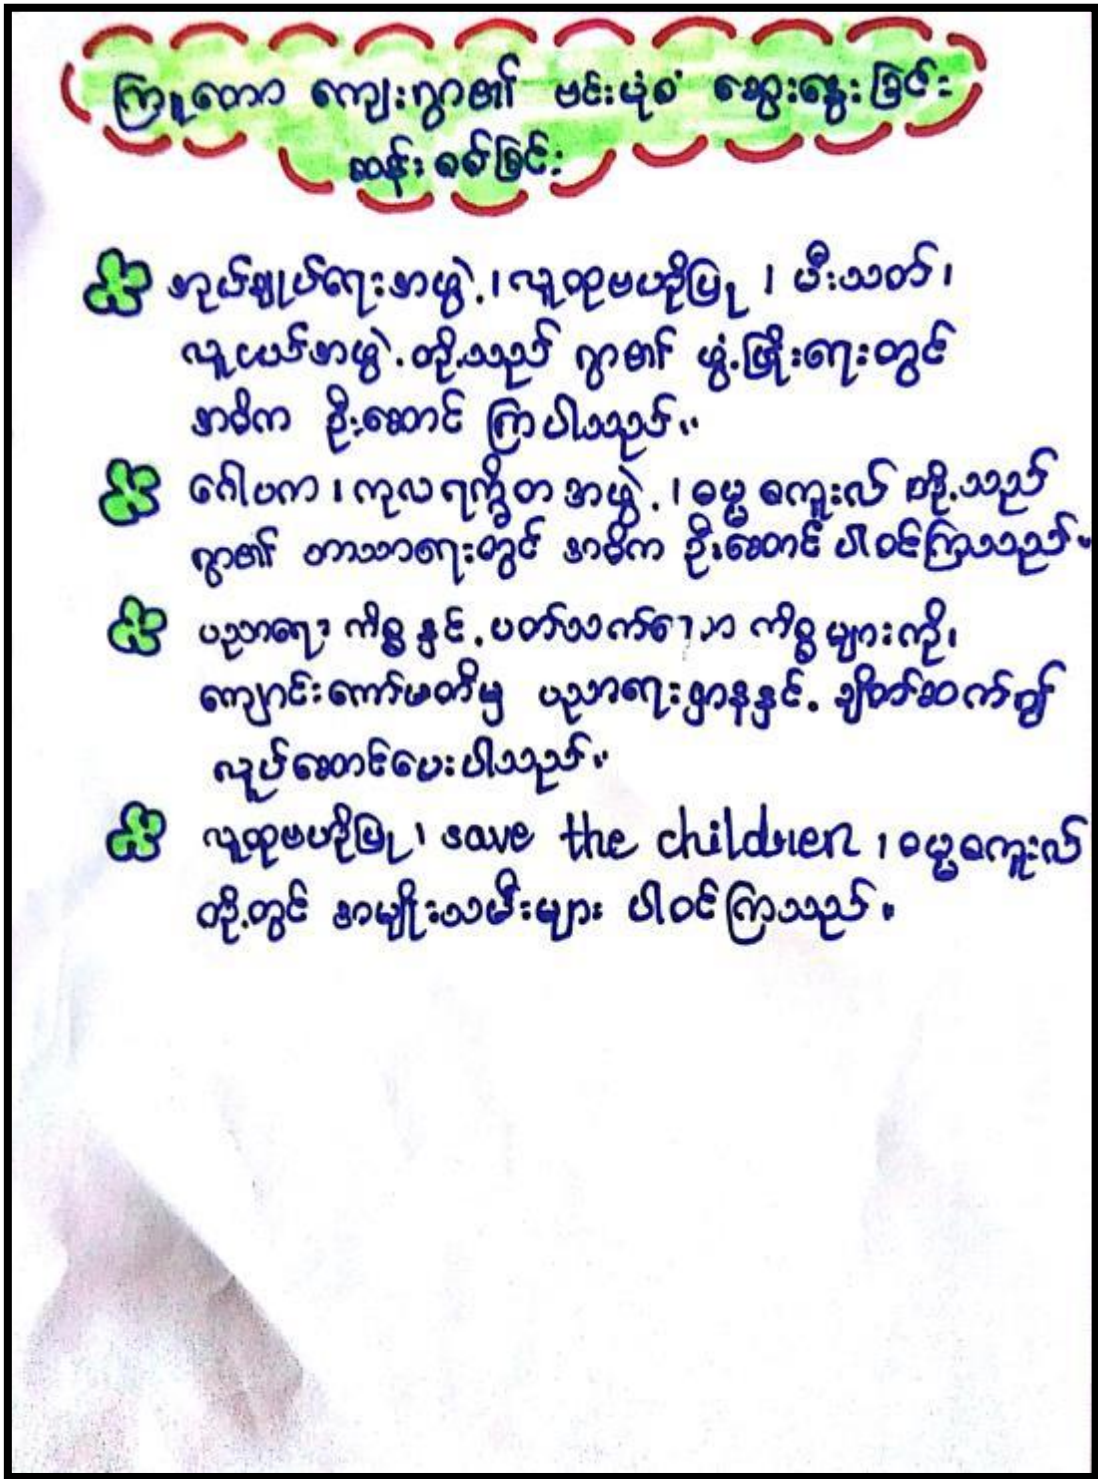 ကြူတော ကျေးရွာ၏ ဗင်းပုံစံ ဆွေးနွေးခြင်း
ဆန်းစစ်ခြင်း
အုပ်ချုပ်ရေးအဖွဲ့၊ လူထုဗဟိုပြု၊ မီးသတ်၊
လူငယ်အဖွဲ့တို့သည် ရွာ၏ ဖွံ့ဖြိုးရေးတွင်
အဓိက ဦးဆောင် ကြပါသည်။
ဂေါပက၊ ကုလရက္ခိတ အဖွဲ့၊ ဓမ္မစကူးလ် တို့သည်
ရွာ၏ ဘာသာရေးတွင် အဓိက ဦးဆောင် ပါဝင်ကြသည်။
ပညာရေး ကိစ္စနှင့် ပတ်သက်သော ကိစ္စများကို၊
ကျောင်းကော်မတီမှ ပညာရေးဌာနနှင့် ချိတ်ဆက်၍
လုပ်ဆောင်ပေးပါသည်။
လူထုဗဟိုပြု၊ save the children ၊ ဓမ္မစကူးလ်
တို့တွင် အမျိုးသမီးများ ပါဝင်ကြသည်။